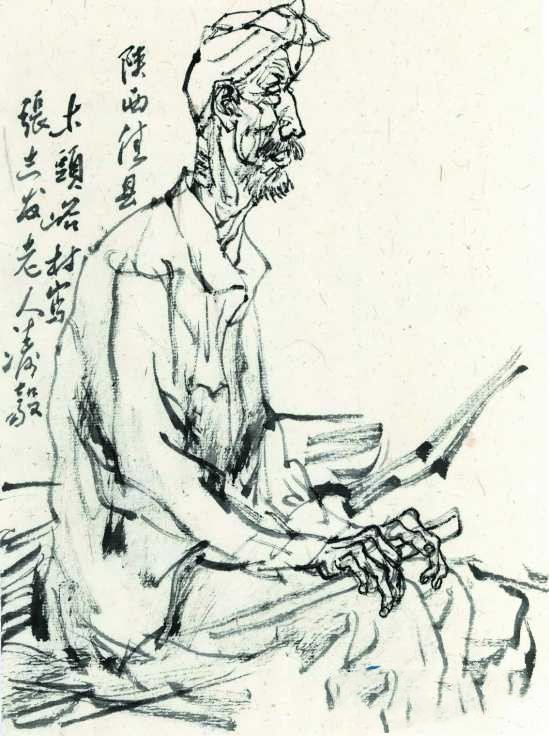 陕西佳县
木頭峪村寫
張志发老人